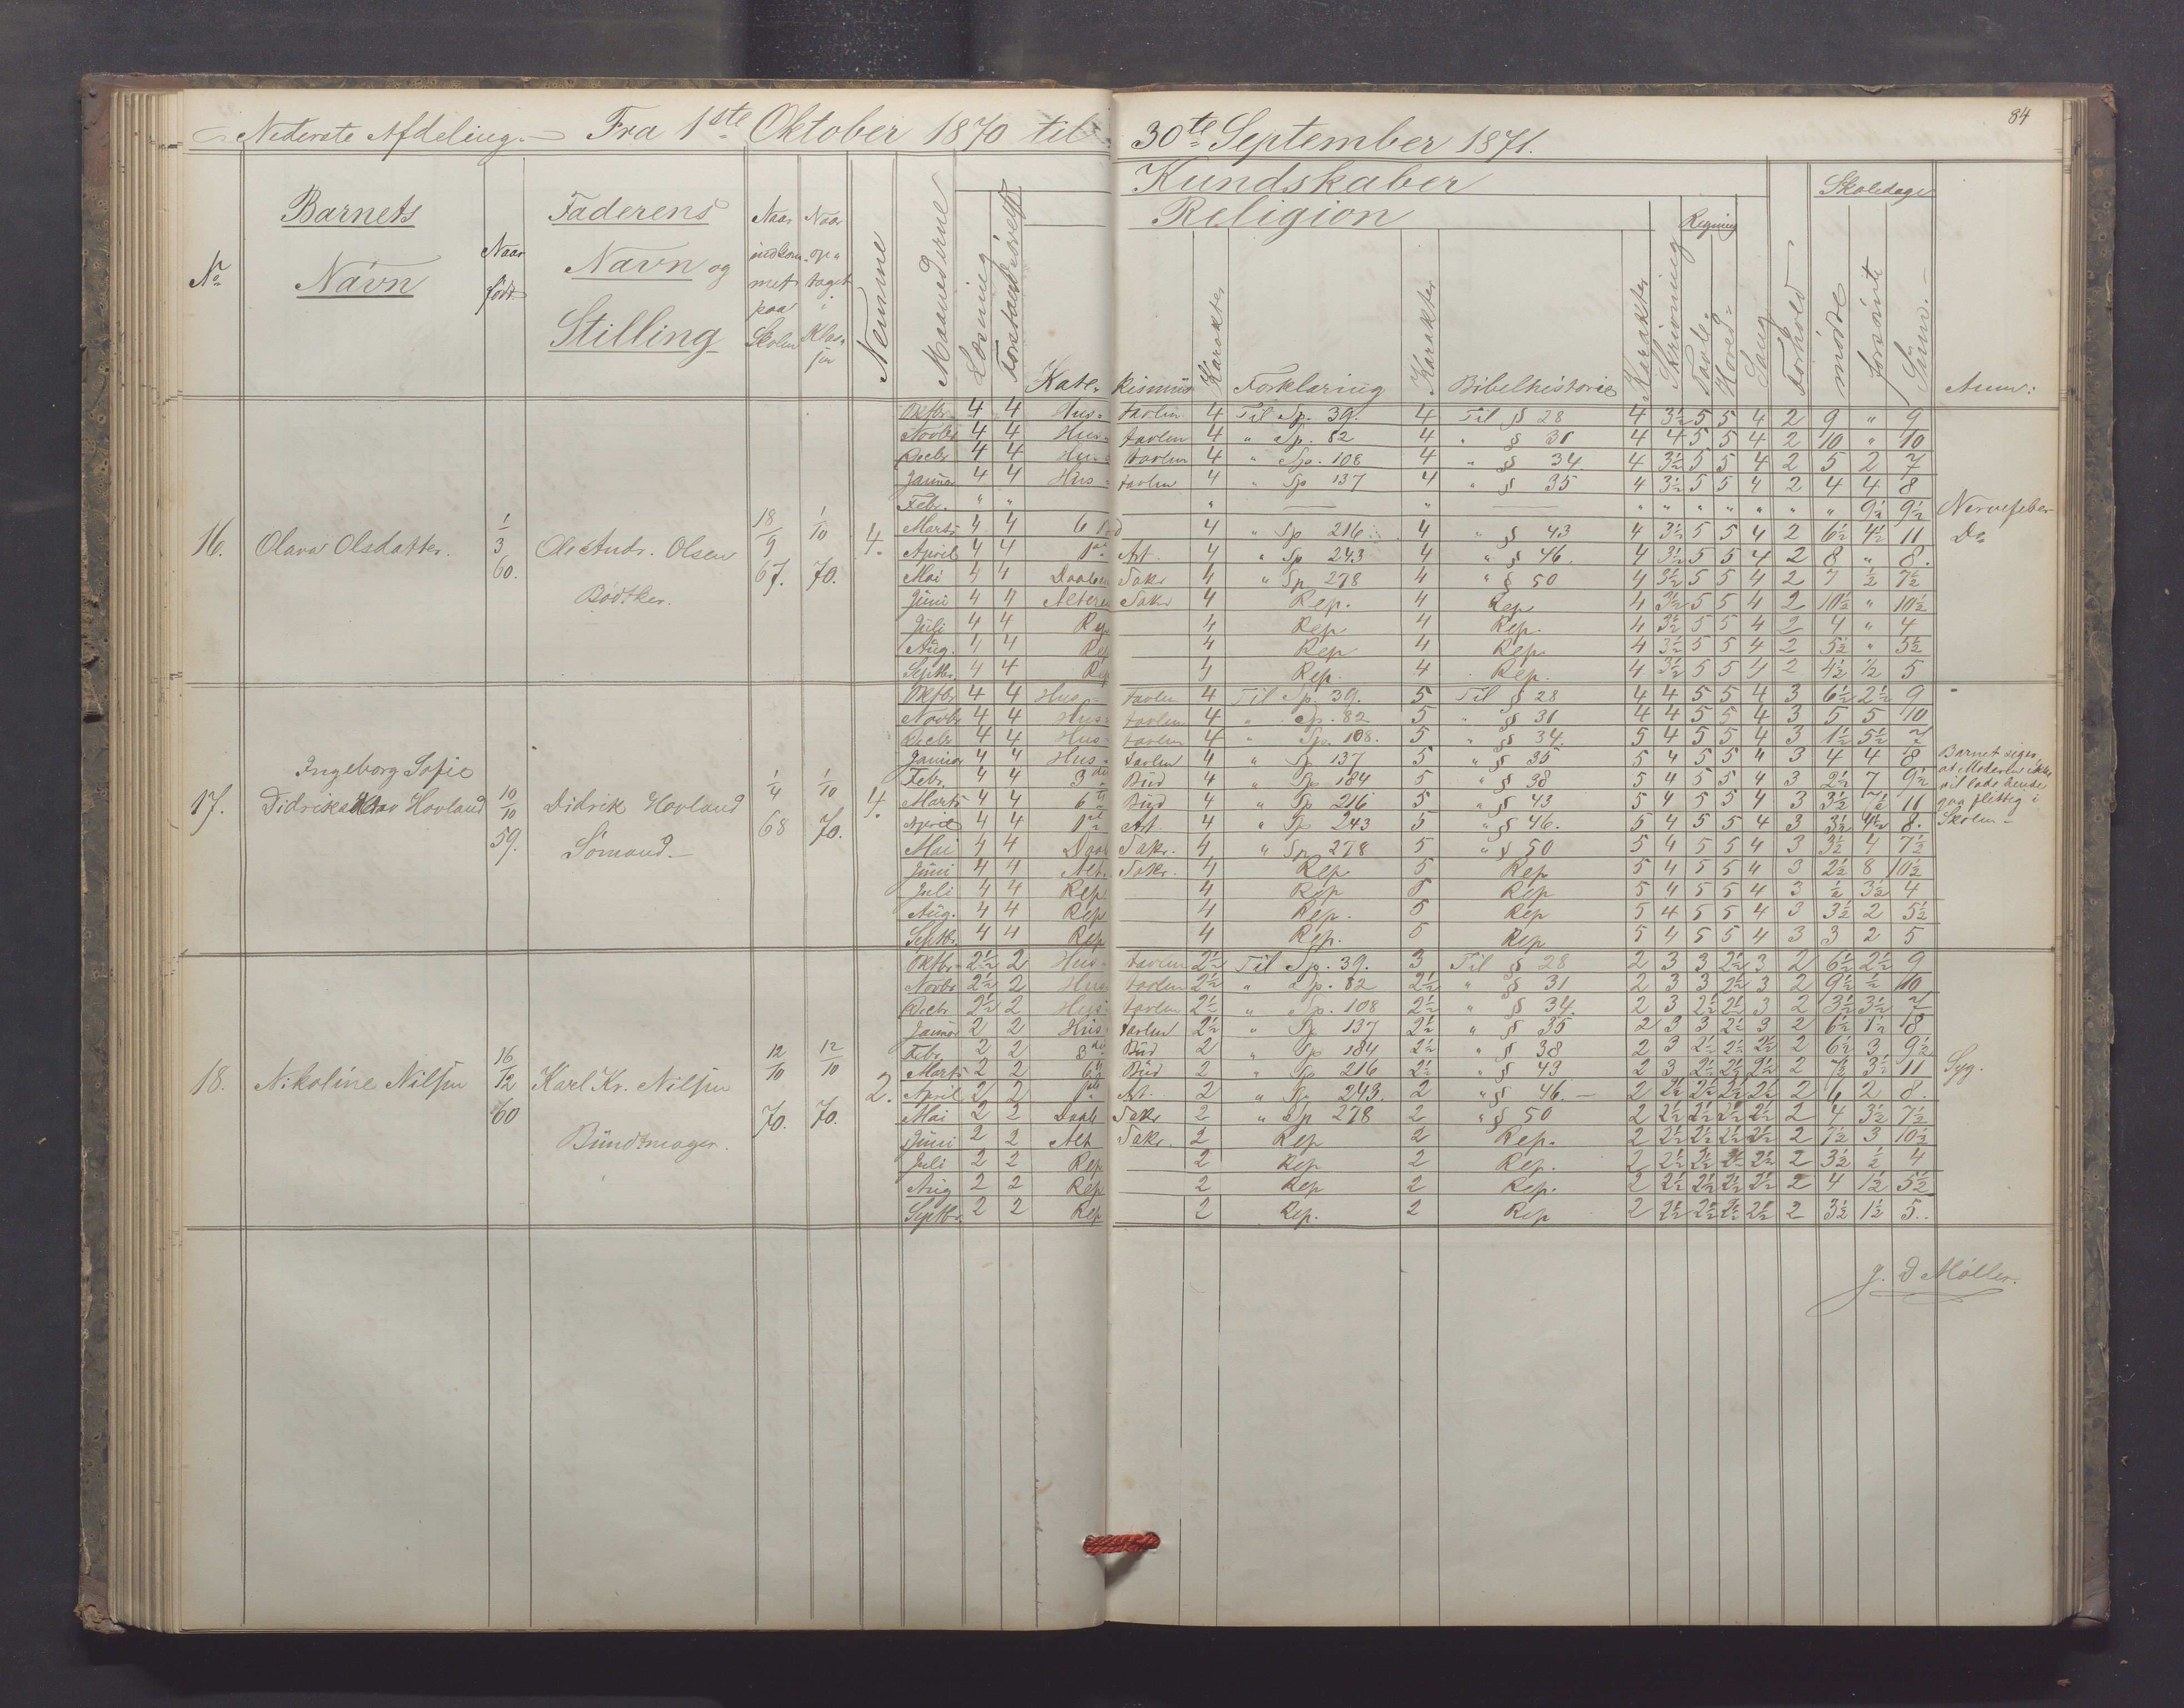 Nederste Afdeling. Fra 1ste Oktober 1870 til 30te September 1871. 84
Kundskaber
Religion Regning Skoledage
No Barnets Navn Naar født Faderens Navn og Stilling Naar indkommet paa Skolen Naar optaget i Klassen Nemme Maanederne Læsning Forstandsøvelse Katekismus Karakter Forklaring Karakter Bibelhistorie Karakter Skrivning Tavle- Hoved- Sang Forhold mødte forsømte Sum. Anm:
16. Olava Olsdatter. 1/3 60. Ole Andr. Olsen Bødtker. 18/9 67. 1/10 70. 4.
Oktbr. 4 4 Hus- tavlen 4 Til Sp. 39. 4 Til § 28 4 3½ 5 5 4 2 9 " 9
Novbr 4 4 Hus- tavlen 4 " Sp. 82 4 " § 31 4 4 5 5 4 2 10 " 10
Decbr 4 4 Hus- tavlen 4 " Sp. 108 4 " § 34. 4 3½ 5 5 4 2 5 2 7
Januar 4 4 Hus- tavlen 4 " Sp 137 4 " § 35 4 3½ 5 5 4 2 4 4 8
Febr. " " " " " " " " " " " 9½ 9½ Nervefeber
Marts 4 4 6 Bud 4 " Sp 216 4 " § 43 4 3½ 5 5 4 2 6½ 4½ 11 Do
April 4 4 1ste Art. 4 " Sp 243 4 " § 46. 4 3½ 5 5 4 2 8 " 8.
Mai 4 4 Daabens Sakr 4 " Sp 278 4 " § 50 4 3½ 5 5 4 2 7 ½ 7½
Juni 4 4 Alterens Sakr 4 Rep. 4 Rep 4 3½ 5 5 4 2 10½ " 10½
Juli 4 4 Rep 4 Rep 4 Rep. 4 3½ 5 5 4 2 4 " 4
Aug. 4 4 Rep 4 Rep 4 Rep. 4 3½ 5 5 4 2 5½ " 5½
Septbr. 4 4 Rep 4 Rep. 4 Rep. 4 3½ 5 5 4 2 4½ ½ 5
17. Ingeborg Sofie Didriksdatter Hovland 10/10 59. Didrik Hovland Sømand. 1/4 68 1/10 70. 4.
Oktbr 4 4 Hus- tavlen 4 Til Sp. 39. 5 Til § 28 4 4 5 5 4 3 6½ 2½ 9
Novbr 4 4 Hus- tavlen 4 " Sp. 82 5 " § 31 4 4 5 5 4 3 5 5 10
Decbr 4 4 Hus- tavlen 4 " Sp. 108. 5 " § 34. 5 4 5 5 4 3 1½ 5½ 7
Januar 4 4 Hus- tavlen 4 " Sp 137 5 " § 35 5 4 5 5 4 3 4 4 8
Febr. 4 4 3die Bud 4 " Sp 184 5 " § 38 5 4 5 5 4 3 2½ 7 9½
Marts 4 4 6te Bud 4 " Sp 216 5 " § 43 5 4 5 5 4 3 3½ 7½ 11
April 4 4 1ste Art. 4 " Sp 243 5 " § 46. 5 4 5 5 4 3 3½ 4½ 8.
Mai 4 4 Daab Sakr. 4 " Sp 278 5 " § 50 5 4 5 5 4 3 3½ 4 7½
Juni 4 4 Alt. Sakr. 4 Rep 5 Rep 5 4 5 5 4 3 2½ 8 10½
Juli 4 4 Rep 4 Rep 5 Rep 5 4 5 5 4 3 ½ 3½ 4
Aug. 4 4 Rep 4 Rep. 5 Rep 5 4 5 5 4 3 3½ 2 5½
Septbr. 4 4 Rep 4 Rep. 5 Rep 5 4 5 5 4 3 3 2 5
Barnet siger,
at Moderen ikke
vil lade hende
gaa flittig i
Skolen
18. Nikoline Nilsen 16/12 60 Karl Kr. Nilsen Bundtmager. 12/10 70. 12/10 70. 2.
Oktbr 2½ 2 Hus- tavlen 2½ Til Sp. 39. 3 Til § 28 2 3 3 2½ 3 2 6½ 2½ 9
Novbr 2½ 2 Hus tavlen 2½ " Sp. 82 2½ " § 31 2 3 3 2½ 3 2 9½ ½ 10
Decbr 2½ 2 Hus- tavlen 2½ " Sp. 108 2½ " § 34. 2 3 2½ 2½ 3 2 3½ 3½ 7
Januar 2 2 Hus- tavlen 2½ " Sp 137 2½ " § 35 2 3 3 2½ 3 2 6½ 1½ 8
Febr. 2 2 3die Bud 2 " Sp 184 2½ " § 38 2 3 2½ 2½ 2½ 2 6½ 3 9½
Marts 2 2 6te Bud 2 " Sp 216 2½ " § 43 2 3 2½ 2½ 2½ 2 7½ 3½ 11 Syg.
April 2 2 1ste Art. 2 " Sp. 243. 2 " § 46. 2 2½ 2½ 2½ 2½ 2 6 2 8.
Mai 2 2 Daab Sakr 2 " Sp 278 2 " § 50 2 2½ 2½ 2½ 2½ 2 4 3½ 7½
Juni 2 2 Alt Sakr. 2 Rep 2 Rep. 2 2½ 2½ 2½ 2½ 2 7½ 3 10½
Juli 2 2 Rep 2 Rep 2 Rep. 2 2½ 2½ 2½ 2½ 2 3½ ½ 4
Aug 2 2 Rep 2 Rep 2 Rep. 2 2½ 2½ 2½ 2½ 2 4 1½ 5½
Septbr. 2 2 Rep 2 Rep. 2 Rep 2 2½ 2½ 2½ 2½ 2 3½ 1½ 5.
J. D Møller.